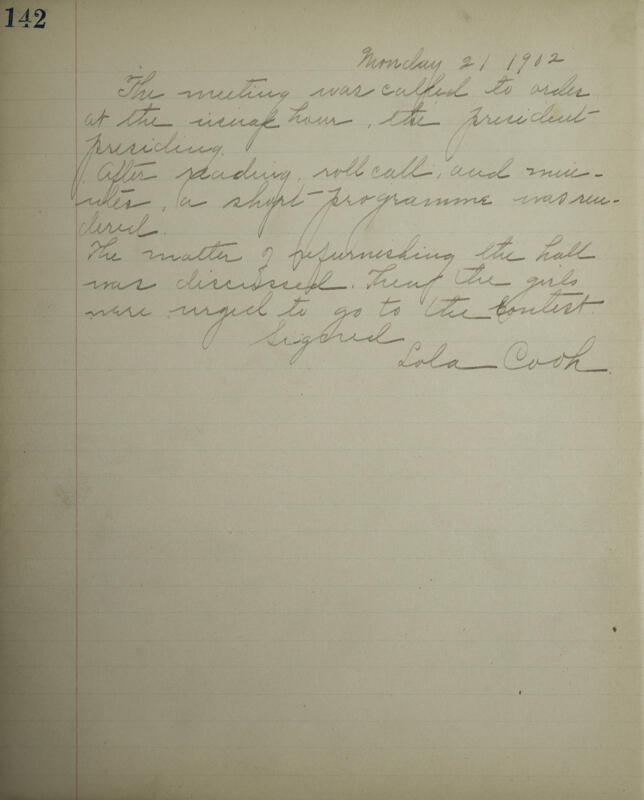 142
Monday 21 1902
The meeting was called to order
at the usual hour, the president
presiding.
After reading, roll call, and min-
utes, a short programme was ren-
dered.
The matter of refurneshing the hall
was discussed. Then the girls
were urged to go to the Contest.
Signed
Lola Cook.